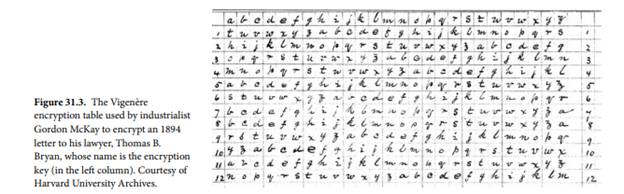 Figure 31.3. The Vigenère
encryption table used by industrialist
Gordon McKay to encrypt an 1894
letter to his lawyer, Thomas B.
Bryan, whose name is the encryption
key (in the left column). Courtesy of
Harvard University Archives.
a b c d e f g h i j k l m n o p q r s t u v w x y z
1 t u v w x y z a b c d e f g h i j k l m n o p q r s 1
2 h i j k l m n o p q r s t u v w x y z a b c d e f g 2
3 o p q r s t u v w x y z a b c d e f g h i j k l m n 3
4 m n o p q r s t u v w x y z a b c d e f g h i j k l 4
5 a b c d e f g h i j k l m n o p q r s t u v w x y z 5
6 s t u v w x y z a b c d e f g h i j k l m n o p q r 6
7 b c d e f g h i j k l m n o p q r s t u v w x y z a 7
8 b c d e f g h i j k l m n o p q r s t u v w x y z a 8
9 r s t u v w x y z a b c d e f g h i j k l m n o p q 9
10 y z a b c d e f g h i j k l m n o p q r s t u v w x 10
11 a b c d e f g h i j k l m n o p q r s t u v w x y z 11
12 n o p q r s t u v w x y z a b c d e f g h i j k l m 12